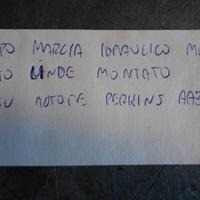 PO MARCIA IDRAULICO M
TO LINDE MONTATO
SU MOTORE PERKINS AAZ